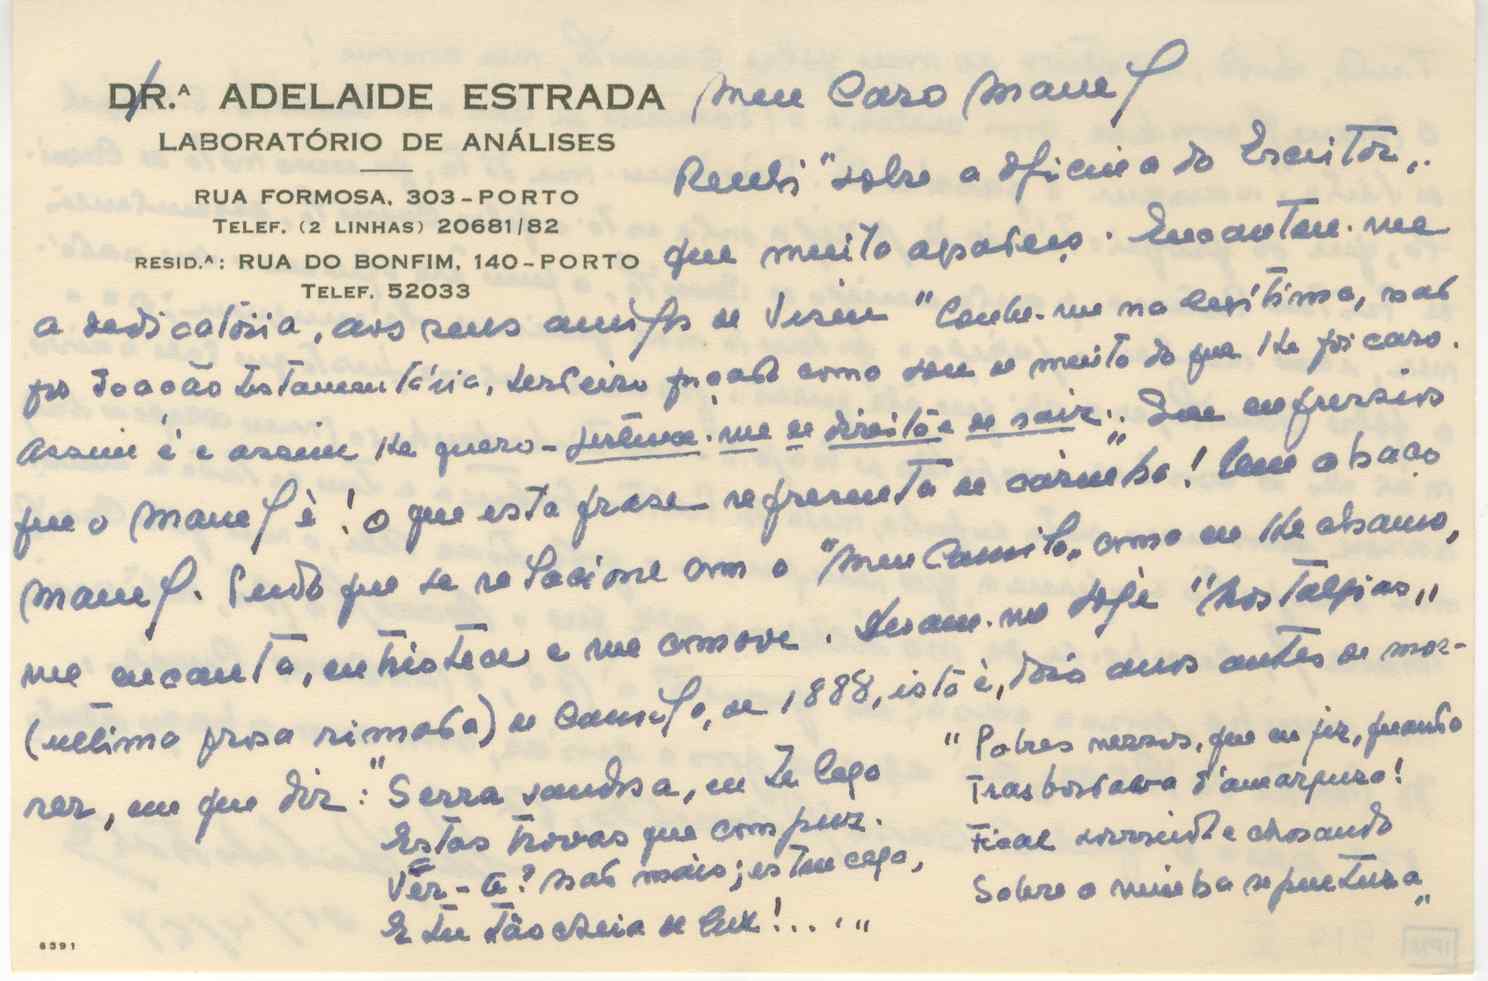 DR.ª ADELAIDE ESTRADA
LABORATÓRIO DE ANÁLISES
RUA FORMOSA, 303-PORTO
TELEF. (2 LINHAS) 20681/82
RESID.ª: RUA DO BONFIM, 140-PORTO
TELEF. 52033
Meu Caro Manuel
Recebi "sobre a oficina do Escritor"
que muito agradeço. Encantou-me
a dedicatória, aos seus amigos de Viseu "Coube-me na legítima, não
por doação testamentária, terceiro filho como sou e muito do que lhe foi caro.
Assim é e assim lhe quero - sentença-me o direito de sair". Que expressivo
que o Manuel é! O que esta frase representa de carinho! Um abraço
Manuel. Tudo que se relacione com o "Meu Camilo" como eu lhe chamo,
me encanta, entristece e me comove. Deram-me hoje "Nostalgias"
(última prosa rimada) de Camilo, de 1888, isto é, dois anos antes de mor-
rer, em que diz: "Serra saudosa, eu te lego
Estas trovas que compuz.
Vêr-te? Não mais; estou cego,
E tu tão cheia de luz!...."
"Pobres versos, que eu fiz, quando
Trasbordava d'amargura!
Ficae sorrindo e chorando
Sobre a minha sepultura"
6391